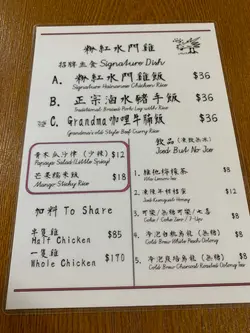 粉紅水門雞
招牌主食 Signature Dish
A. 粉紅水門雞飯 $36
Signature Hainanese Chicken Rice
B. 正宗滷水豬手飯 $36
Traditional Braised Pork Leg with Rice
C. Grandma咖哩牛腩飯 $36
Grandma's old Style Beef Curry Rice
青木瓜沙律 (少辣) $12
Papaya Salad (Little Spicy)
芒果糯米飯 $18
Mango Sticky Rice
加料 To Share
半隻雞 $85
Half Chicken
一隻雞 $170
Whole Chicken
飲品
Iced But No Ice
1.
2.
3. 可樂
Coke / Coke Zero / 7-Up
4.
Cold Brew White Peach Oolong
5.
Cold Brew Charcoal Roasted Oolong Tea